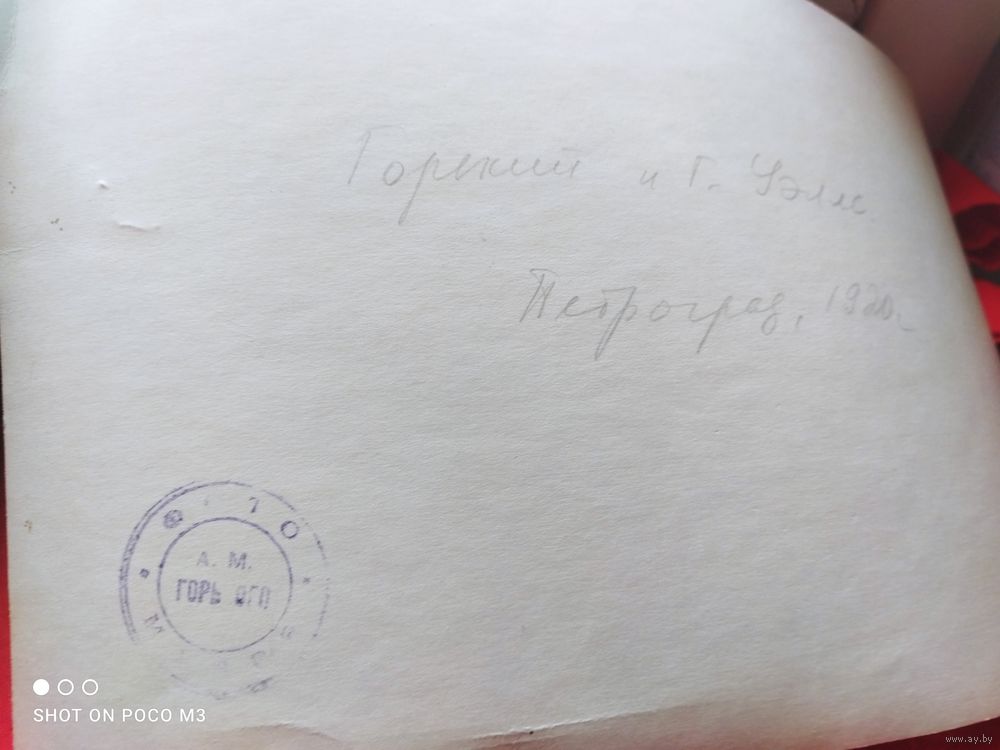 Горький и Г. Уэллс.
Петроград, 1920 г.
ФОТО
А. М.
ГОРЬКОГО
SHOT ON POCO M3
www.ay.by